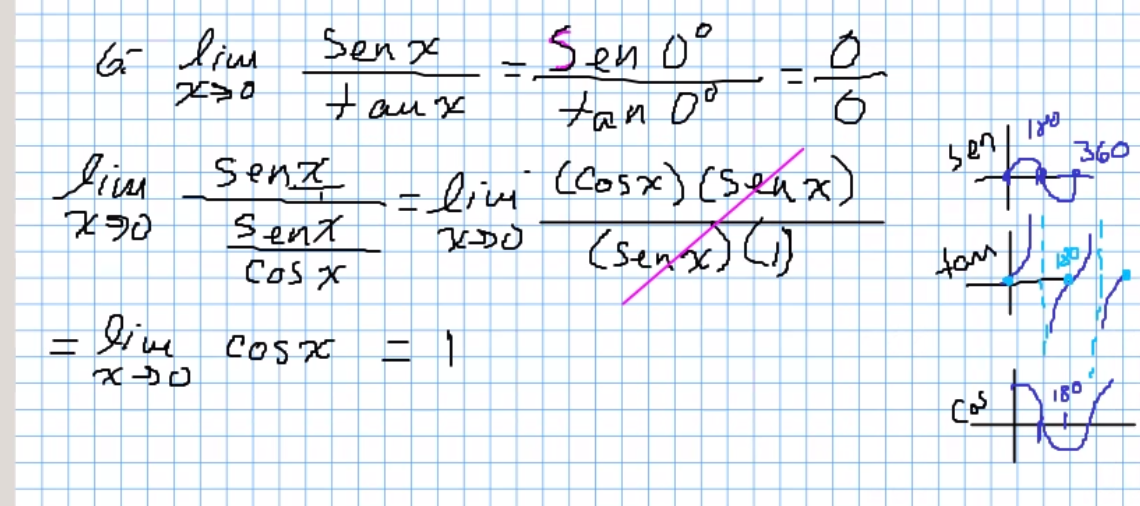 6- lim x→0 sen x / tan x = Sen 0° / tan 0° = 0/0
lim x→0 (sen x / 1) / (sen x / cos x) = lim x→0 (cos x)(sen x) / (sen x)(1)
= lim x→0 cos x = 1
sen 180 360
tan 180
cos 180